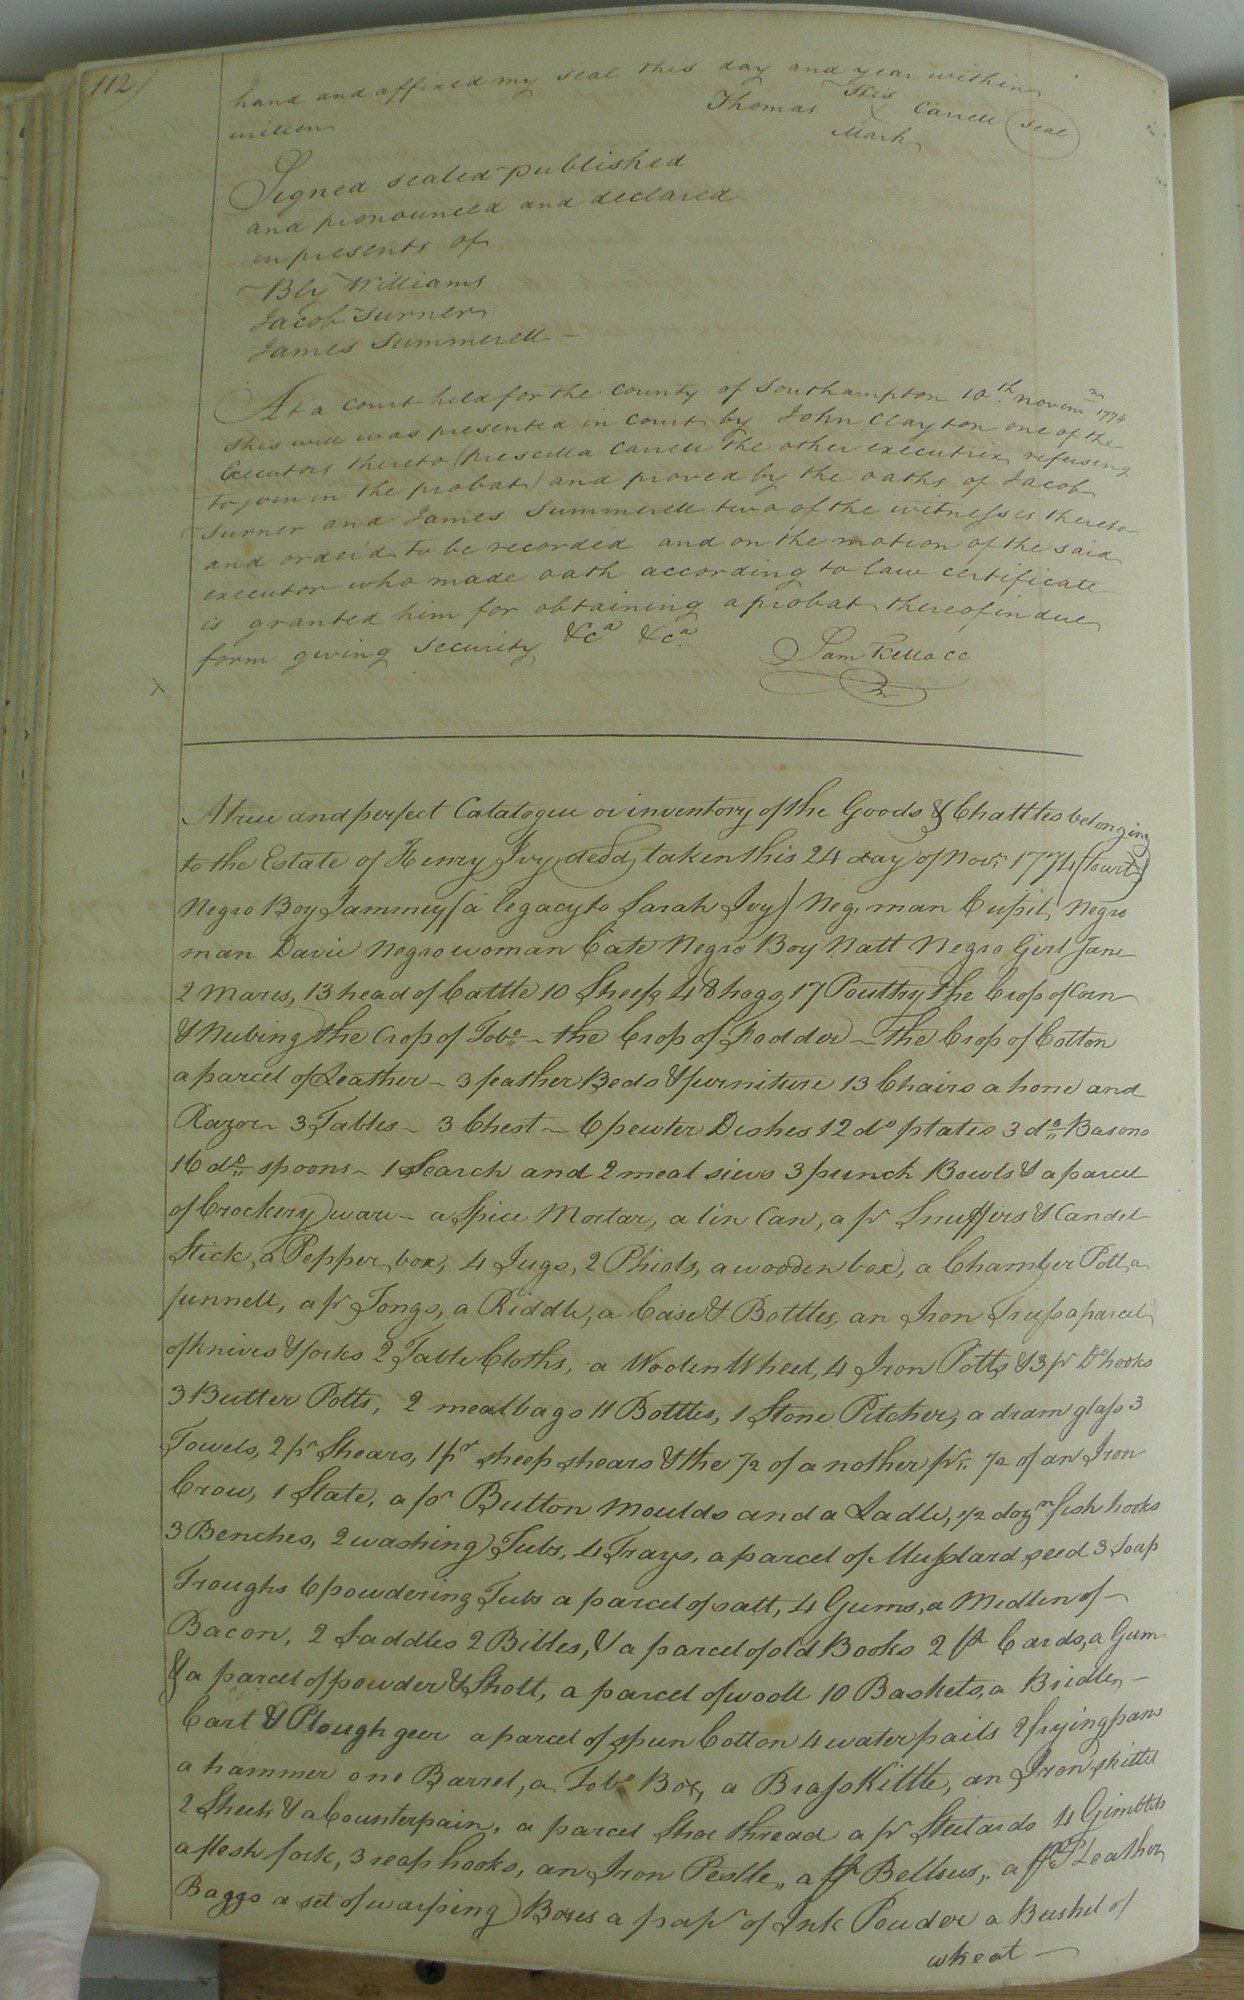 112/
hand and affixed my seal this day and year within
written Thomas his X mark Carrell (seal)
Signed sealed published
and pronounced and declared
in presents of
Bly Williams
Jacob Turner
James Summerell —
At a court held for the county of Southampton 10th. novemr. 1774
This will was presented in court by John Clayton one of the
Executors thereto (Prescilla Carrell the other executrix refusing
to join in the probat) and proved by the oaths of Jacob
Turner and James Summerell two of the witnesses thereto
and order'd to be recorded and on the motion of the said
executor who made oath according to law certificate
is granted him for obtaining a probat thereof in due
form giving security &ca &ca.
Sam Kello CC
X
A true and perfect Catalogue or inventory of the Goods & Chattles belonging
to the Estate of Henry Ivy decd, taken this 24 day of Novr. 1774 (towit)
Negro Boy Jammey (a legacy to Sarah Ivy) Neg. man Cupit, Negro
man Davie Negro woman Cate Negro Boy Natt Negro Girl Jane
2 Mares, 13 head of Cattle 10 Sheep, 48 hogg 17 Poultry the Crop of Corn
& Nubing the Crop of Tobo. — the Crop of Fodder — the Crop of Cotton
a parcel of Leather — 3 feather Beds & furniture 13 Chairs a hone and
Razor — 3 Tables — 3 Chest — 6 pewter Dishes 12 do plates 3 do. Basons
16 do. spoons — 1 Search and 2 meal sives 3 punch Bowls & a parcel
of Crockery ware — a Spice Mortar, a tin Can, a pr Snuffirs & Candel
Stick, a Pepper box, 4 Jugs, 2 Phiols, a wooden box, a Chamber Pott, a
funnell, a pr Tongs, a Riddle, a Case & Bottles, an Iron Trussa parcel
of knives & forks 2 Table Cloths, a Wooden Wheel, 4 Iron Potts & 3 pr Do hooks
3 Butter Potts, 2 meal bags 11 Bottles, 1 Stone Pitcher, a dram glass 3
Towels, 2 pr Shears, 1 pr sheep shears & the 1/2 of a nother pr. 1/2 of an Iron
Crow, 1 Slate, a pr Button Moulds and a Ladle, 1/2 dozn fish hooks
3 Benches, 2 washing Tubs, 4 Trays, a parcel of Musstard seed 3 Soap
Troughs 6 powdering Tubs a parcel of salt, 4 Gums, a Medlin of —
Bacon, 2 Saddles 2 Bibles, & a parcel of old Books 2 pr Cards, a Gun
& a parcel of powder & Shott, a parcel of wooll 10 Baskets, a Bridle, —
Cart & Plough geer a parcel of spun Cotton 4 water pails 2 frying pans
a hammer one Barrel, a Tobo. Box, a Brass Kittle, an Iron skittel
2 Sheets & a Counterpain, a parcel Shoe thread a pr Steelards 4 Gimblets
a flesh fork, 3 reap hooks, an Iron Pestle, a pr Bellows, a pr Leather
Baggs a set of warping Boxes a papr of Ink Powder a Bushel of
wheat —